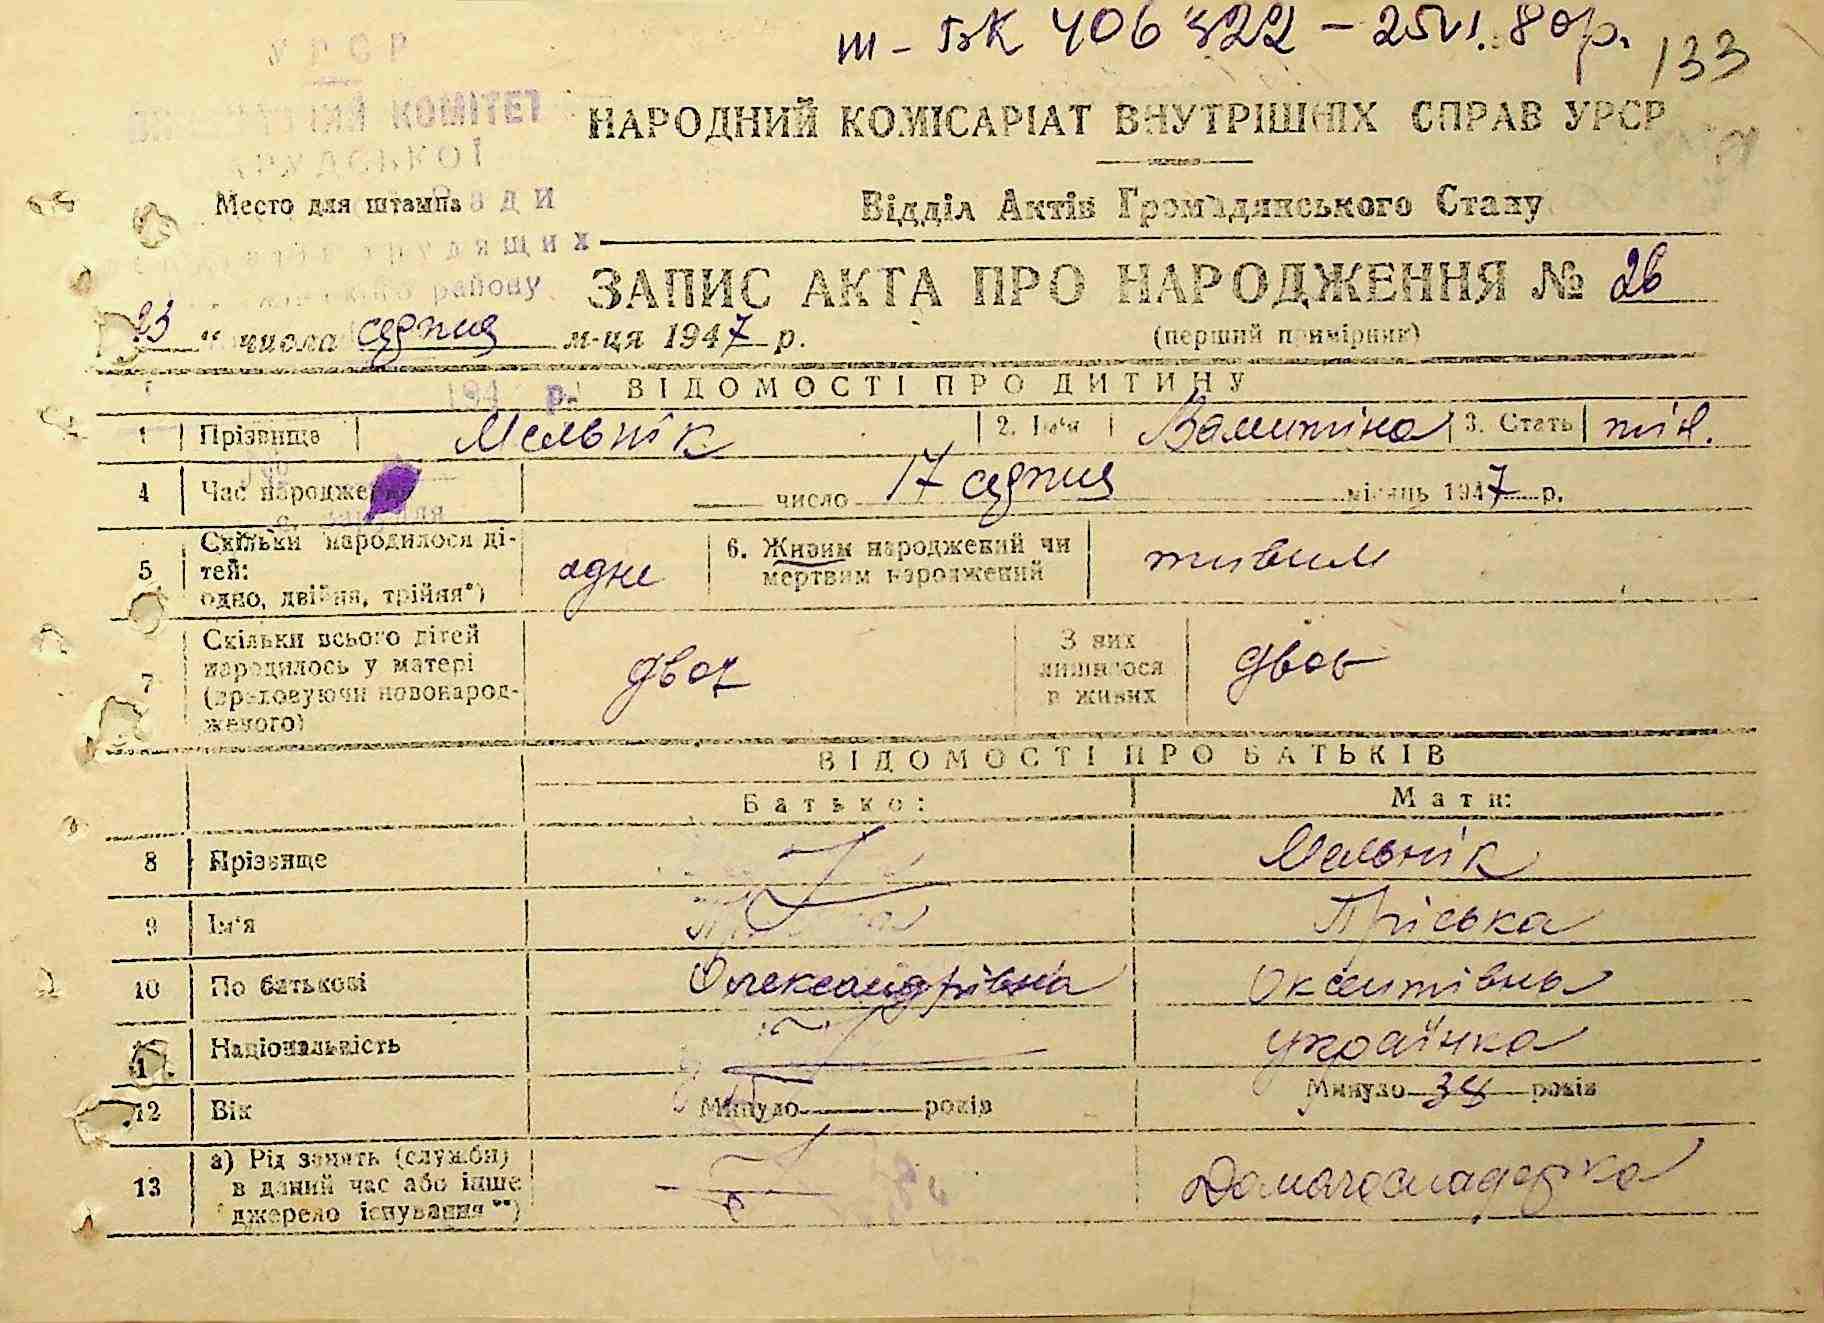 ІІІ - БК 406322 - 25 VI. 80р. 133
УРСР
КОМІТЕТ
НАРОДНИЙ КОМІСАРІАТ ВНУТРІШНІХ СПРАВ УРСР
Место для штампа
Відділ Актів Громадянського Стану
трудящих
району
ЗАПИС АКТА ПРО НАРОДЖЕННЯ № 26
23 " числа серпня м-ця 1947 р.
(перший примірник)
194 р.
ВІДОМОСТІ ПРО ДИТИНУ
1 Прізвище Мельнік 2. Ім'я Валинтіна 3. Стать жін.
4 Час народження число 17 серпня місяць 1947 р.
5 Скільки народилося ді-
тей:
одно, двійня, трійня*)
одне
6. Живим народжений чи
мертвим народжений
живим
7 Скільки всього дітей
народилось у матері
(враховуючи новонарод-
женого)
двоє
З них
лишилося
в живих
двоє
ВІДОМОСТІ ПРО БАТЬКІВ
Батько: Мати:
8 Прізвище Мельнік
9 Ім'я Пріська
10 По батькові Олександрівна Оксентівна
11. Національність українка
12 Вік Минуло років Минуло 34 років
13 а) Рід занять (служби)
в даний час або інше
джерело існування**)
Домогосподарка